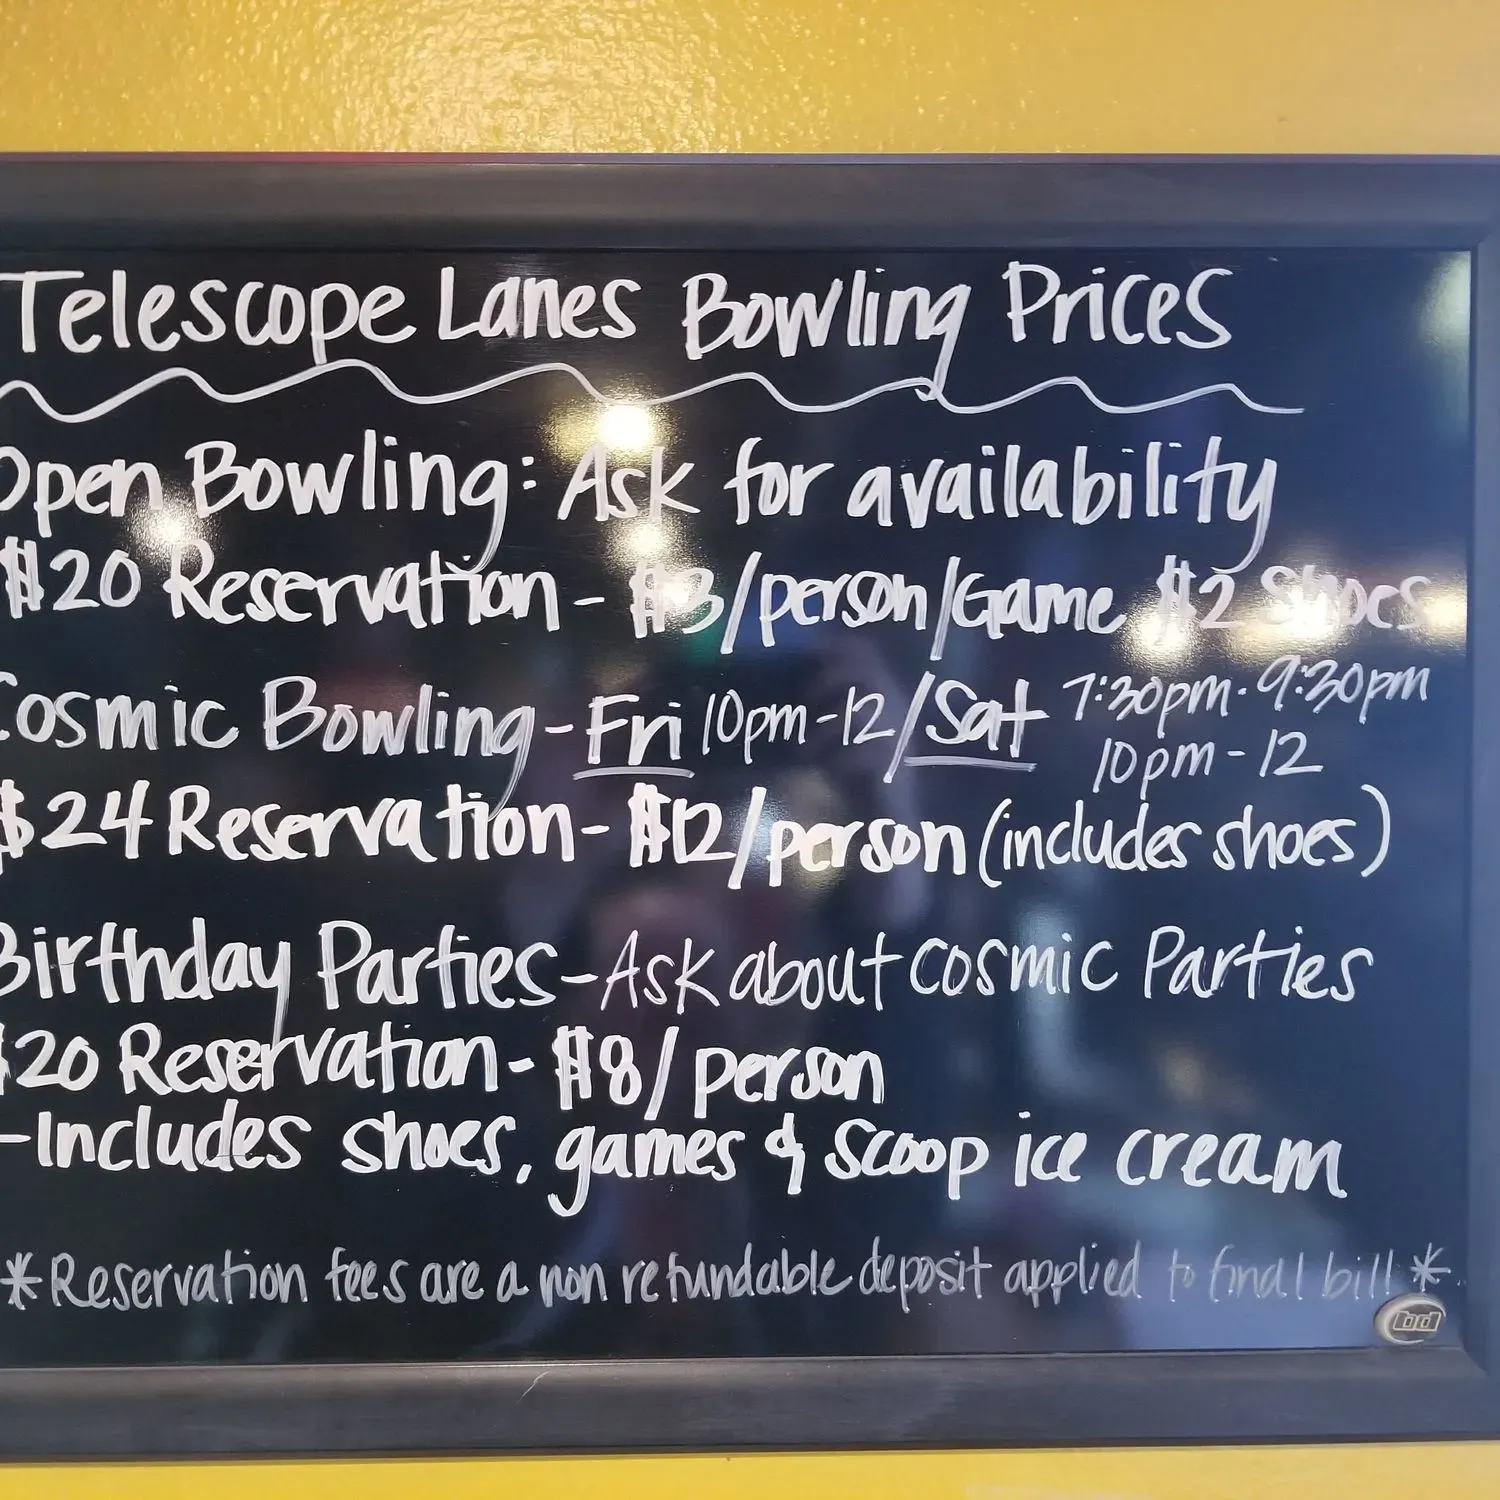 Telescope Lanes Bowling Prices
Open Bowling: Ask for availability
$20 Reservation - $3/person/Game $2 Shoes
Cosmic Bowling - Fri 10pm-12/Sat 7:30pm-9:30pm
10pm-12
$24 Reservation - $12/person (includes shoes)
Birthday Parties - Ask about cosmic Parties
$20 Reservation - $8/person
-Includes shoes, games & scoop ice cream
*Reservation fees are a non refundable deposit applied to final bill*
bd